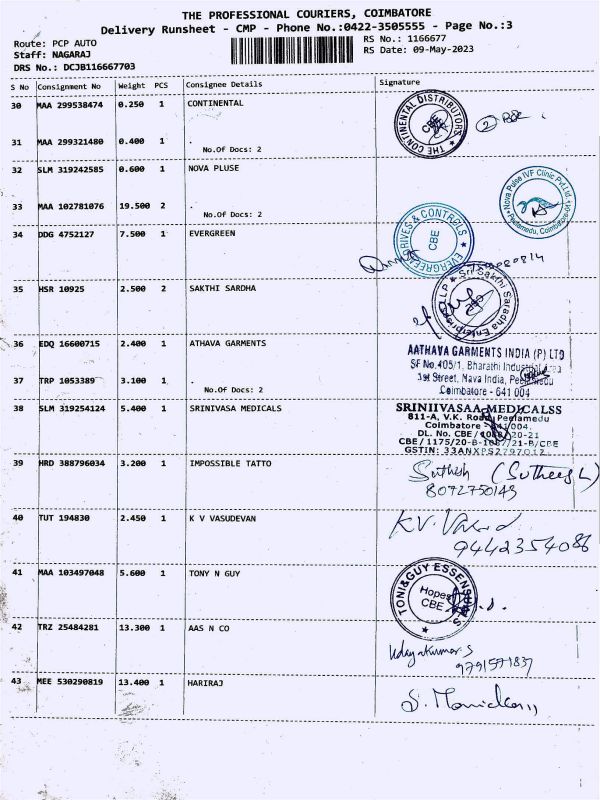 THE PROFESSIONAL COURIERS, COIMBATORE
Delivery Runsheet - CMP - Phone No.:0422-3505555 - Page No.:3
Route: PCP AUTO
Staff: NAGARAJ
DRS No.: DCJB116667703
RS No.: 1166677
RS Date: 09-May-2023
S No Consignment No Weight PCS Consignee Details Signature
30 MAA 299538474 0.250 1 CONTINENTAL
THE CONTINENTAL DISTRIBUTORS
CBE
31 MAA 299321480 0.400 1 .
No.Of Docs: 2
32 SLM 319242585 0.600 1 NOVA PLUSE
Nova Pulse IVF Clinic Pvt Ltd
Peelamedu, Coimbatore
33 MAA 102781076 19.500 2 .
No.Of Docs: 2
34 DDG 4752127 7.500 1 EVERGREEN
EVERGREEN DRIVES & CONTROLS
CBE
35 HSR 10925 2.500 2 SAKTHI SARDHA
Sri Sakthi Saradha Enterprises LLP
36 EDQ 16600715 2.400 1 ATHAVA GARMENTS
AATHAVA GARMENTS INDIA (P) LTD
SF No.405/1, Bharathi Industrial Area
3st Street, Nava India, Peelamedu
Coimbatore - 641 004
37 TRP 1053389 3.100 1 .
No.Of Docs: 2
38 SLM 319254124 5.400 1 SRINIVASA MEDICALS
SRINIIVASAA MEDICALSS
811-A, V.K. Road, Peelamedu
Coimbatore - 641 004.
DL. No. CBE / 20-21
CBE / 1175/20-B /21-B/CBE
GSTIN: 33ANXPS2797Q1Z
39 HRD 388796034 3.200 1 IMPOSSIBLE TATTO
Suthesh (Sutheesh)
8072750149
40 TUT 194830 2.450 1 K V VASUDEVAN
K.V.
9442354086
41 MAA 103497048 5.600 1 TONY N GUY
TONI&GUY ESSENSUALS
Hopes
CBE
42 TRZ 25484281 13.300 1 AAS N CO
Udayakumar S
9791571837
43 MEE 530290819 13.400 1 HARIRAJ
S. Manickam